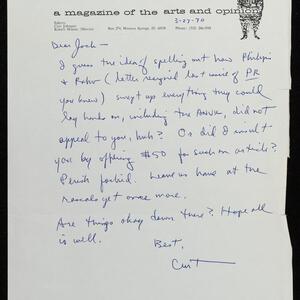 a magazine of the arts and opinion
3-27-70
Editor:
Curt Johnson
Dear Jack—
I guess the idea of spelling out how Philips
& Rahv (latter resigned last week of PR
you know) swept up everything they could
lay hands on, including the ANVIL, did not
appeal to you, huh? Or did I insult
you by offering $50 for such an article?
Perish forbid. Leave us have at the
rascals yet once more.
Are things okay down there? Hope all
is well.
Best,
Curt